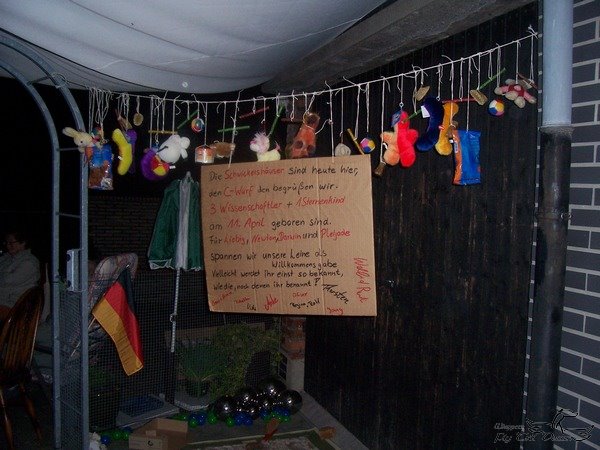 Die Schwickershäuser sind heute hier,
den C-Wurf den begrüßen wir.
3 Wissenschaftler + 1 Sternenkind
am 11. April geboren sind.
Für Liebig, Newton, Darwin und Plejade
spannen wir unsere Leine als
Willkommensgabe
Vielleicht werdet Ihr einst so bekannt,
wie die, nach denen ihr benannt?